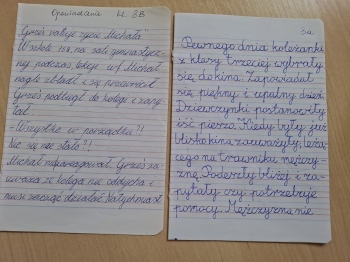 Opowiadanie kl. 8B
"Grześ ratuje życie Michała"
W szkole na sali gimnastycz-
nej podczas lekcji wf Michał
nagle zbladł i się przewrócił
Grześ podbiegł do kolegi i zapy-
tał
- Wszystko w porządku?!
Nic się nie stało?!
Michał nie zareagował. Grześ za-
uważa że kolega nie oddycha i
musi zacząć działać. Natychmiast
5a
Pewnego dnia koleżanki
z klasy trzeciej wybrały
się do kina. Zapowiadał
się piękny i upalny dzień.
Dziewczynki postanowiły
iść pieszo. Kiedy były już
blisko kina zauważyły, leżą-
cego na trawniku mężczy-
znę. Podeszły bliżej i za-
pytały czy potrzebuje
pomocy. Mężczyzna nie